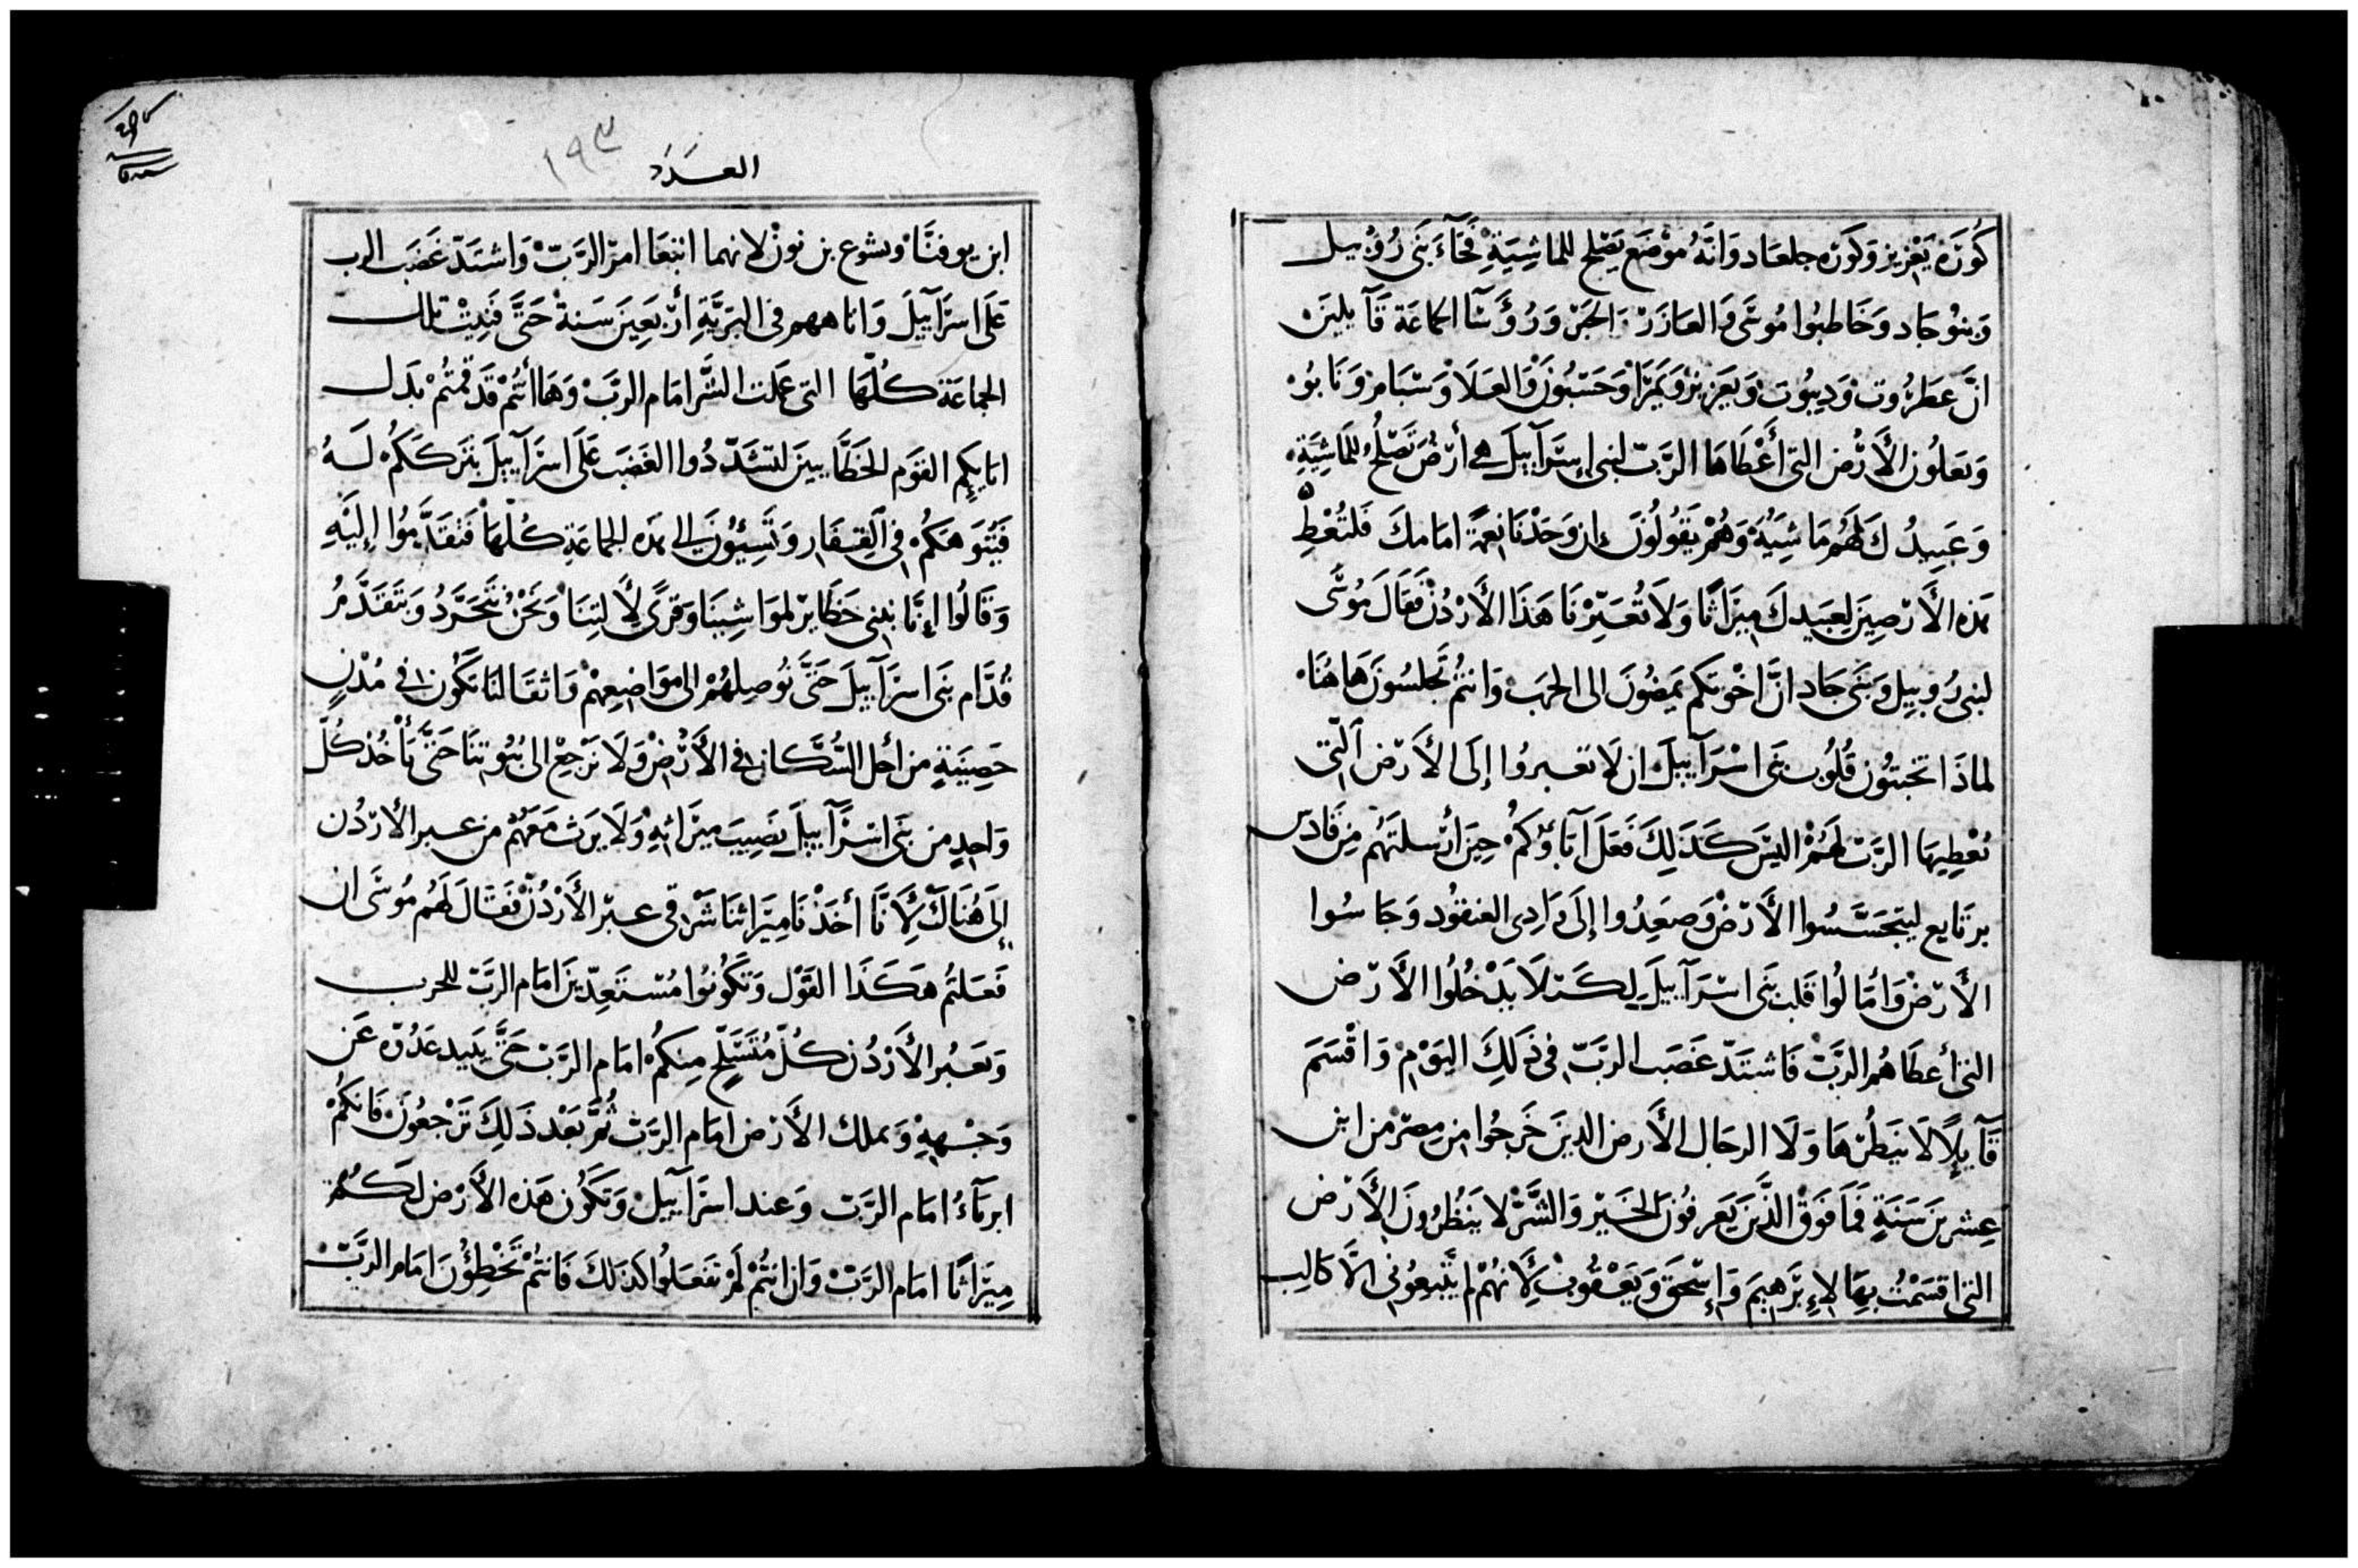 كُورَة يَعْزِيز وَكورَه جلعَاد وَانَّهُ مَوْضَع يَصْلح للماشِيَةِ فَجَآءَ بَنَى رُوُبيل
وَبنوُجَاد وَخَاطبُوا مُوسَى وَالعَازَرْ الحَبْر وَرُؤَسَآ الجاعَة قَآيلين
انَّ عَطرُوت وَدِيبُوت وَيعَزيز وَيَمْرَا وَحَسْبُون وَالعَلَا وَسْبَام وَنَابُو
وَبَعلُون الأَرْض التى أَعْطَاهَا الرَّبّ لبنى إسْرَآييلَ هِى أرْضَ تَصْلُح للمَاشِيَةِ
وَعَبِيدُكَ لَهُم مَاشِيَةُ وَهُمْ يَقُولُونَ إن وَجَدْنَا نِعمَة امَامكَ فَلتُعْطِ
هَذه الأَرْضِينَ لعَبيدكَ مِيرَاثًا وَلَا تُعَبِّرْنَا هَذَا الأَرْدُنْ فَقَالَ مُوسَى
لبنى رُوبِيل وَبَنَى جَاد انَّ اخْوتكم يَمضُونَ الى الحَرب وَانتُم تَجلسُونَ هَاهُنَا
لماذَا تخبتُون قُلُوب بَنَى اسْرَآييلَ ان لَا تعبروُا إلَى الأَرْض التى
يُعْطِيهَا الرَّبّ لَهُمْ اليْسَ كَذَلِكَ فَعَلَ آبَاؤكُمْ حِينَ أرْسلتَهُم مِن قَادَس
برنَايع ليتجَسَّسُوا الأَرْضْ وَصعِدُوا إلَى وَادِى العنقُود وَجَاسُوا
الأَرْضْ وَأمَالُوا قَلب بَنَى اسْرَآييلَ لِكَىْ لَا يَدْخُلُوا الأَرْض
التى أعطَاهُم الرَّبّْ فَاشتَدّ غَضَب الرَّبّ فى ذَلِكَ اليَوْم وَاقْسَمَ
قَآيلًا لَا ينظُرْهَا وَلَا الرجَال الأَرض الذِينَ خَرَجُوا مِن مِصْر من ابن
عِشرِينَ سَنَةٍ فَمَا فَوْقْ الذَّينَ يَعرفُونَ الخَيْر وَالشَّرّْ لا يَنظُرُونَ الأَرْض
التى اقسَمْتُ بِهَا لإبْرَهيمَ وَإسْحَقَ وَيَعْقُوبْ لأَنهُمْ لم يَتَّبِعُونى الَّا كَالِب
العَدَدَ
١٩٣
ابن يوفنَّا ويشوع بن نونْ لانهما اتبَعَا امرَ الرَّبّْ وَاشتَدّ غَضَب الرب
عَلَى اسرَآييلَ وَاتاههم فى البَرِيَّةِ أرْبَعِينَ سَنةْ حَتَّى فَنِيتْ تلك
الجمَاعَة كُلّهَا التى عَملت الشَّر امَام الرَبّْ وَهَا أَنتُمْ قَد قمتُمْ بدَل
ابَايكِم القوَم الخَطَّايينَ لتشَدّدُوا الغَضَب عَلَى اسرَآييلَ بتَركَكُمْ لَهُ
فَيُتوَهَكُمْ فى القِفَار وَتُسِيئُونَ الى هَذه الجماعَةِ كُلّهَا فَتقَدَّمُوا إلَيْهِ
وَقَالُوا إنَّا نبنى حَظَايرْ لموَاشِينَا وَقرًى لأَلتِنَا وَنَحْنُ نتَجَرَّدُ وَنتَقَدَّمُ
قُدَّام بَنَى اسرَآييلَ حَتَّى نُوصِلهُمْ الى موَاضِعِهِمْ وَاثقَالنَا تَكُون فى مُدْنٍ
حَصِينَةٍ من أجل السُّكَّان فى الأَرْضْ وَلَا نَرْجِعْ الى بُيُوتنَا حَتَّى يَأْخُذ كُلّ
وَاحِدٍ من بَنَى اسْرَآييلَ نَصِيبَ مِيرَاثِهِ وَلَا يَرث مَعَهُمْ من عبر الأَرْدُن
إلى هُنَاكْ لأَنَّا أخَذْنَا مِيرَاثنَا شَرْقى عبْر الأَرْدُنّْ فَقَالَ لَهُم مُوسَى ان
فَعَلتُم هَكَذَا القَوْل وَتَكُونُوا مُسْتَعِدّينَ امَام الرَبّ للحرب
وَيَعبُر الأَرْدُن كُلّ مُتَسَلّحٍ مِنكُمْ امَام الرَّبّ حَتَّى يَبيد عَدُوّه عَن
وَجْههِ وَيملك الأَرْض امَام الرَّبّ ثُمَّ بَعْد ذَلِكَ تَرْجعُونَ فَانكُمْ
ابريَآءُ امَام الرَّبّ وَعند اسرَآييلْ وَتَكُون هَذه الأَرْض لَكُمْ
مِيرَاثًا امَام الرَّبّْ وَان انتُمْ لَمْ تفعَلُوا كذلكَ فَانتُمْ تَخْطِؤُنَ امَام الرَّبّْ